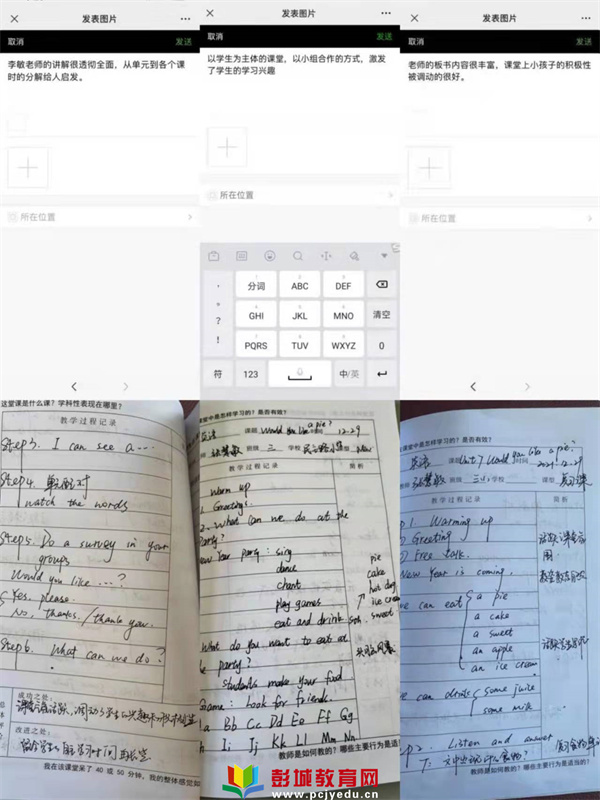 发表图片
取消
发送
李敏老师的讲解很透彻全面，从单元到各个课
时的分解给人启发。
所在位置
发表图片
取消
发送
以学生为主体的课堂，以小组合作的方式，激发
了学生的学习兴趣
所在位置
分词
ABC
DEF
GHI
JKL
MNO
清空
PQRS
TUV
WXYZ
0
符
123
中/英
发表图片
取消
发送
老师的板书内容很丰富，课堂上小孩子的积极性
被调动的很好。
所在位置
这堂课是什么课？学科性表现在哪里？
教学过程记录
Step3. I can see a ...
Step4.
watch the words
Step5. Do a survey in your
groups
Would you like ...?
Yes, please.
No, thanks. / thank you.
Step6. What can we do?
成功之处：
改进之处：
我在该课堂呆了 40 或 50 分钟，我的整体感觉如
课堂中是怎样学习的？是否有效？
英语
课题 Would you like a pie?
12-29
班级 三
学校
课型 New
教学过程记录
简析
Warm up
1. Greetings
2. What can we do at the
party?
New Year party: sing
dance
chant
play games
eat and drink
pie
cake
hot dog
ice cream
sweet
What do you want to eat at
the party?
students make your food
Game: Look for friends
Aa Bb Cc Dd Ee Ff Gg
Hh Ii Jj Kk Ll Mm Nn
教师是如何教的？哪些主要行为是适
课堂中是怎样学习的？是否有效？
英语
Unit 7 Would you like a pie?
时间 2021.12.29
班级 三
学校
课型 复习课
教学过程记录
简析
1. Warming up
Greeting
Free talk.
New Year is coming.
we can eat
a pie
a cake
a sweet
an apple
an ice cream
we can drink
some juice
some milk
2. Listen and answer
教师是如何教的？哪些主要行为是适当的？
彭城教育网
www.pcjyedu.cn